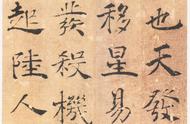 也天發
移星易
發殺機
起陸人